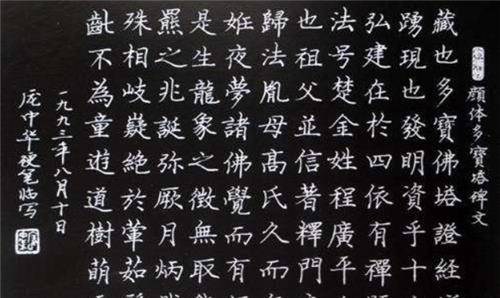 顏体多寶塔碑文
藏也多寶佛塔證經
踴現也發明資乎十
弘建在於四依有禪
法号楚金姓程廣平
也祖父並信著釋門
歸法胤母高氏久而
妊夜夢諸佛覺而有
是生龍象之徵無取
羆之兆誕弥厥月炳
殊相岐嶷絕於葷茹
齔不為童遊道樹萌
一九九三年八月十日
庞中华硬笔临写